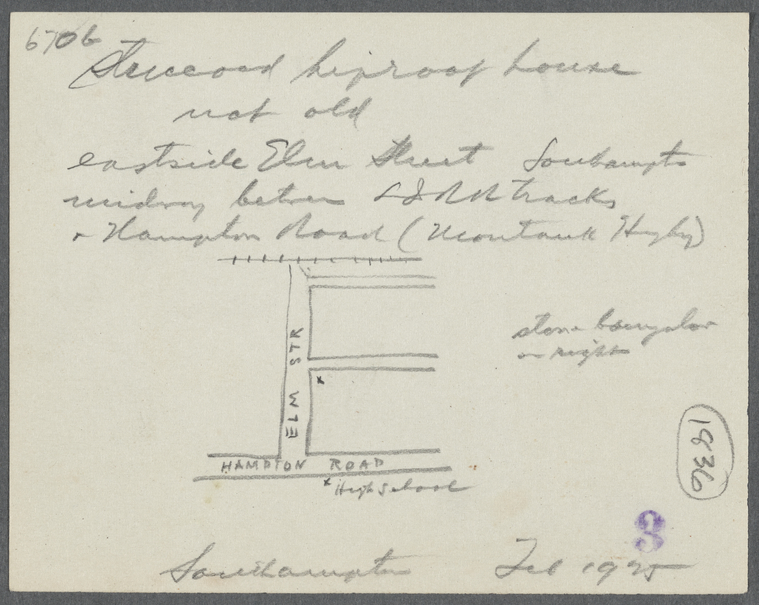 6706
Stuccoed hiproof house
not old
eastside Elm Street Southampton
midway between LIRR tracks
+ Hampton Road (Montauk Hgwy)
stone bungalow
on right
ELM STR
HAMPTON ROAD
x High School
1836
3
Southampton Feb 1925